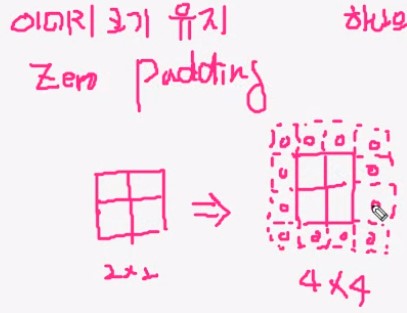 이미지 크기 유지
하나의
Zero Padding
0 0 0 0
0 0
0 0
0 0 0 0
2x2
4x4